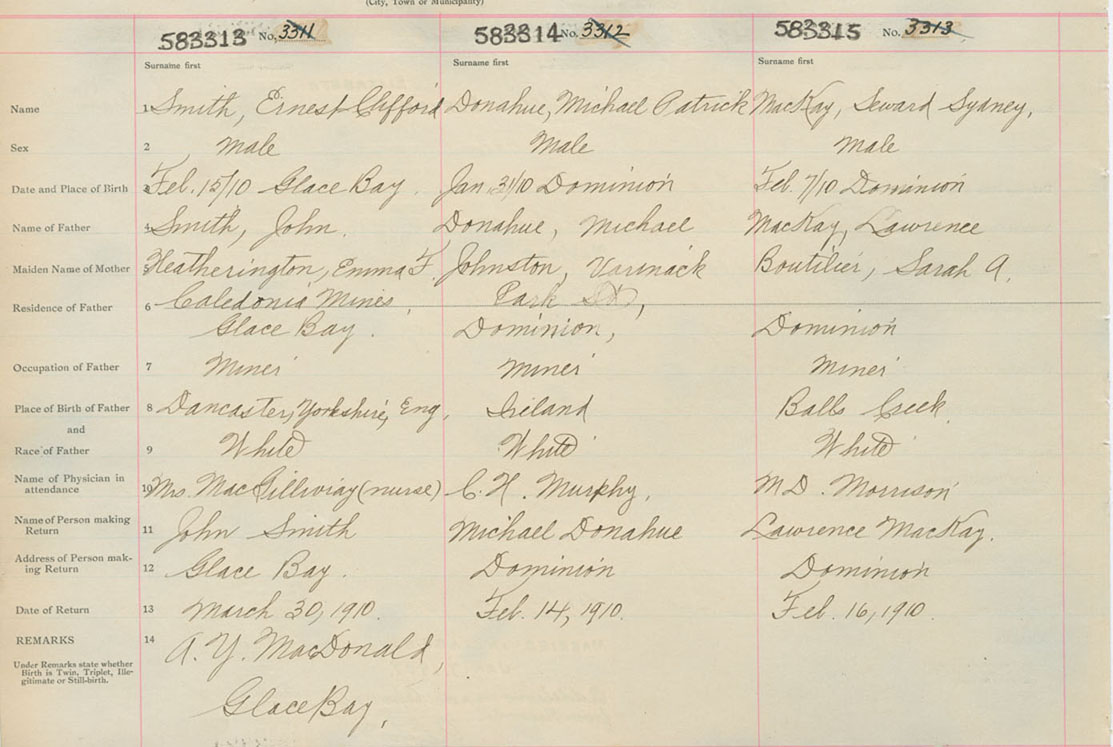 (City, Town or Municipality)
583313 No. 3311 583314 No. 3312 583315 No. 3313
Surname first Surname first Surname first
Name 1 Smith, Ernest Clifford Donahue, Michael Patrick MacKay, Seward Sydney,
Sex 2 Male Male Male
Date and Place of Birth 3 Feb. 15/10 Glace Bay. Jan 31/10 Dominion Feb. 7/10 Dominion
Name of Father 4 Smith, John. Donahue, Michael MacKay, Lawrence
Maiden Name of Mother 5 Heatherington, Emma F. Johnston, Boutilier, Sarah A.
Residence of Father 6 Caledonia Mines, Park
Glace Bay. Dominion, Dominion
Occupation of Father 7 Miner Miner Miner
Place of Birth of Father 8 Dancaster, Yorkshire, Eng, Ireland Balls Creek
and
Race of Father 9 White White White
Name of Physician in
attendance 10 Mrs. MacGillivray (nurse) C. H. Murphy, M.D. Morrison
Name of Person making
Return 11 John Smith Michael Donahue Lawrence MacKay.
Address of Person mak-
ing Return 12 Glace Bay. Dominion Dominion
Date of Return 13 March 30, 1910. Feb. 14, 1910. Feb. 16, 1910.
REMARKS 14 A. Y. MacDonald,
Under Remarks state whether
Birth is Twin, Triplet, Ille-
gitimate or Still-birth.
Glace Bay,